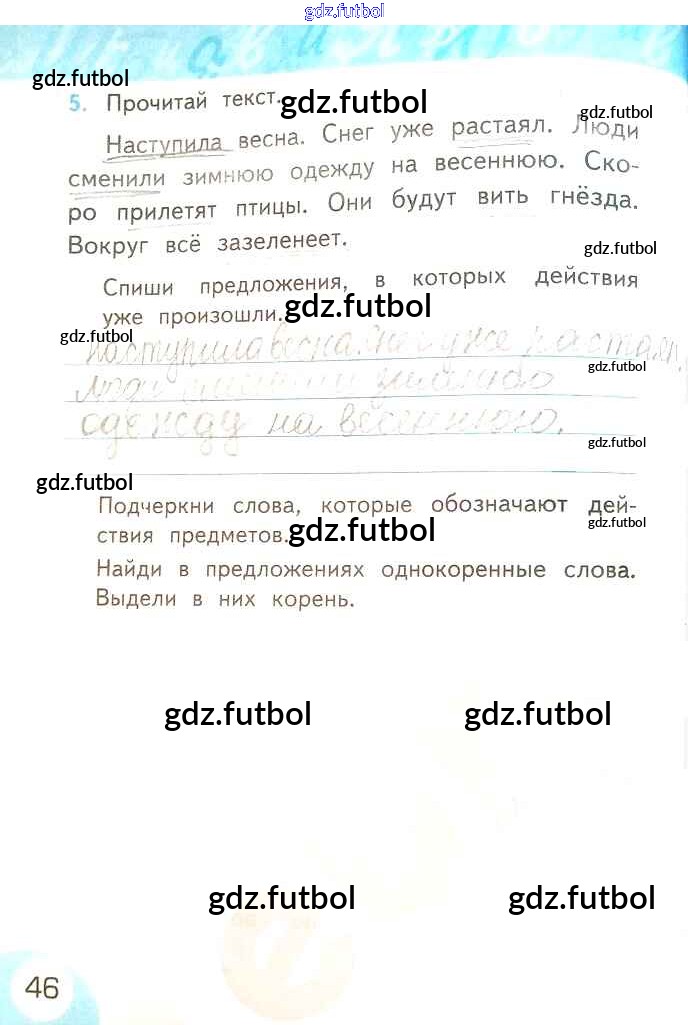 gdz.futbol
gdz.futbol
5. Прочитай текст.
gdz.futbol
gdz.futbol
Наступила весна. Снег уже растаял. Люди
сменили зимнюю одежду на весеннюю. Ско-
ро прилетят птицы. Они будут вить гнёзда.
Вокруг всё зазеленеет.
gdz.futbol
Спиши предложения, в которых действия
уже произошли.
gdz.futbol
gdz.futbol
наступила весна. снег уже растаял.
gdz.futbol
люди сменили
одежду на весеннюю.
gdz.futbol
gdz.futbol
Подчеркни слова, которые обозначают дей-
ствия предметов.
gdz.futbol
gdz.futbol
Найди в предложениях однокоренные слова.
Выдели в них корень.
gdz.futbol gdz.futbol
gdz.futbol gdz.futbol
46